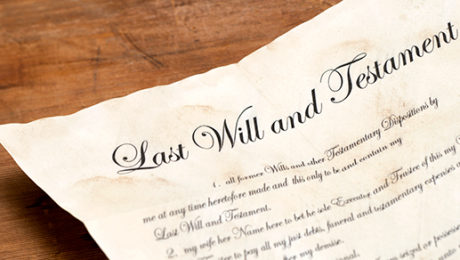 Last Will and Testament
1. all former Wills and other Testamentary Dispositions by
me at any time heretofore made and this only to be and contain my
Last Will and Testament.
2. my wife her Name here to bet he sole Executor and Trustee of this my
Trustee to pay all my just debts, funeral and testamentary expenses
my demise.
seized or possessed